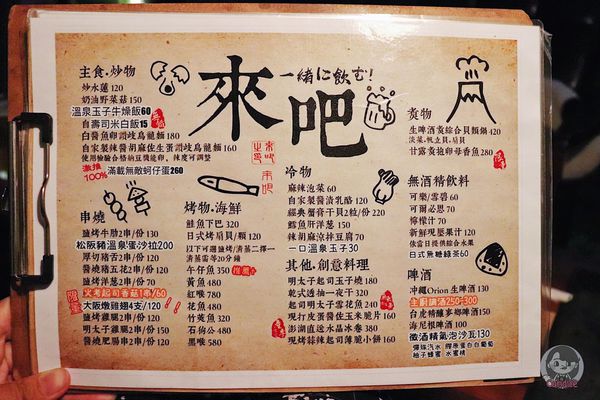 來吧
一緒に飲む!
主食.炒物
炒水蓮 120
奶油野菜菇 150
溫泉玉子牛燥飯60
自壽司米白飯15
白醬魚卵讚岐烏龍麵 180
自家製辣醬胡麻佐生蛋讚岐烏龍麵 160
使用檢驗合格納豆機能卵，辣度可調整
激推
100%
滿載無敵蚵仔蛋260
串燒
鹽烤牛肋2串/份 130
松阪豬溫泉蜜沙拉200
厚切豬舌2串/份 120
醬燒豬五花2串/份 130
鹽烤洋蔥2串/份 70
火烤起司香菇1串/60
大阪燉雞翅4支/120
鹽烤雞腿2串/份 120
明太子雞腿2串/份 150
醬燒肥腸串2串/份 140
烤物.海鮮
鮭魚下巴 320
日式烤扇貝/顆 120
以下可選鹽烤/清蒸二擇一
清蒸需等20分鐘
午仔魚 350
黃魚 480
紅喉 780
花魚 480
竹筴魚 320
石狗公 480
黑喉 580
冷物
麻辣泡菜 60
自家製醬漬乳酪 120
經典蟹膏干貝2粒/份 220
鱈魚肝洋蔥 150
辣胡麻涼拌豆腐 70
一口溫泉玉子30
其他.創意料理
明太子起司玉子燒 180
乾式透抽一夜干 320
明太子起司雪花魚 240
現打皮蛋醬佐玉米脆片 160
澎湖直送水晶冰卷 380
現烤蒜辣起司薄脆小餅 160
煮物
生啤酒煮綜合貝類鍋 420
淡菜.帆立貝.扇貝
甘露煮抱卵母香魚 280
無酒精飲料
可樂/雪碧 60
可爾必思 70
檸檬汁 70
新鮮現壓果汁 120
依當日提供綜合水果
日式無糖綠茶60
啤酒
沖繩Orion 生啤酒 150
主廚調酒250-300
台虎精釀麥啤酒 150
海尼根啤酒 100
微酒精氣泡沙瓦 130
彈珠汽水 膠原蛋白白葡萄
柚子蜂蜜 水蜜桃